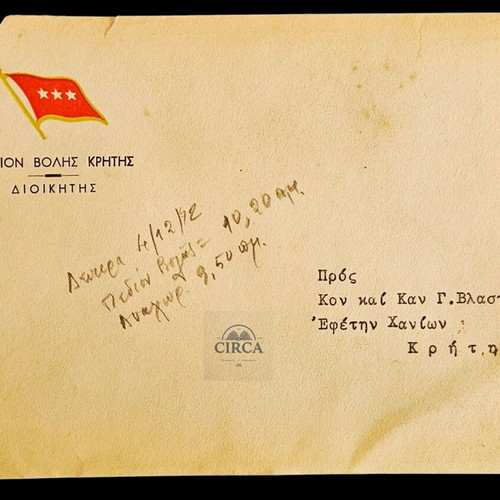 ΙΟΝ ΒΟΛΗΣ ΚΡΗΤΗΣ
ΔΙΟΙΚΗΤΗΣ
Δευτερα 4/12/72
Πεδίον Βολής = 10,20 πμ.
Αναχωρ. 9,50 πμ.
Πρός
Κον καί Καν Γ.Βλαστ
Ἐφέτην Χανίων
Κρήτη
CIRCA